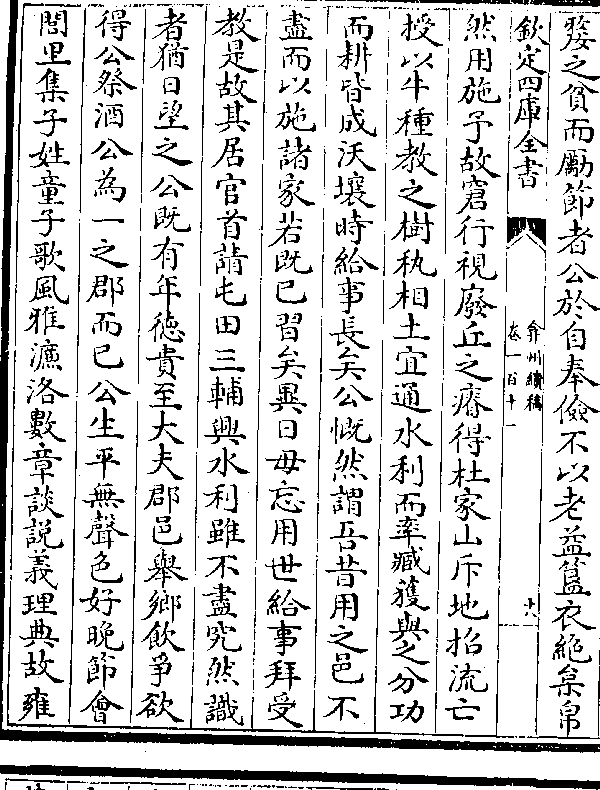 嫠之貧而勵節者公於自奉儉不以老益簋衣絶梟帛
欽定四庫全書
弇州續稿
卷一百十一
十八
然用施予故窘行視廢丘之瘠得杜家山斥地招流亡
授以牛種教之樹秇相土宜通水利而率臧獲與之分功
而耕皆成沃壤時給事長矣公慨然謂吾昔用之邑不
盡而以施諸家若既已習矣異日毋忘用世給事拜受
教是故其居官首請屯田三輔興水利雖不盡究然識
者猶日望之公既有年徳貴至大夫郡邑舉鄉飲爭欲
得公祭酒公為一之郡而已公生平無聲色好晚節會
閭里集子姓童子歌風雅濂洛數章談説義理典故雍